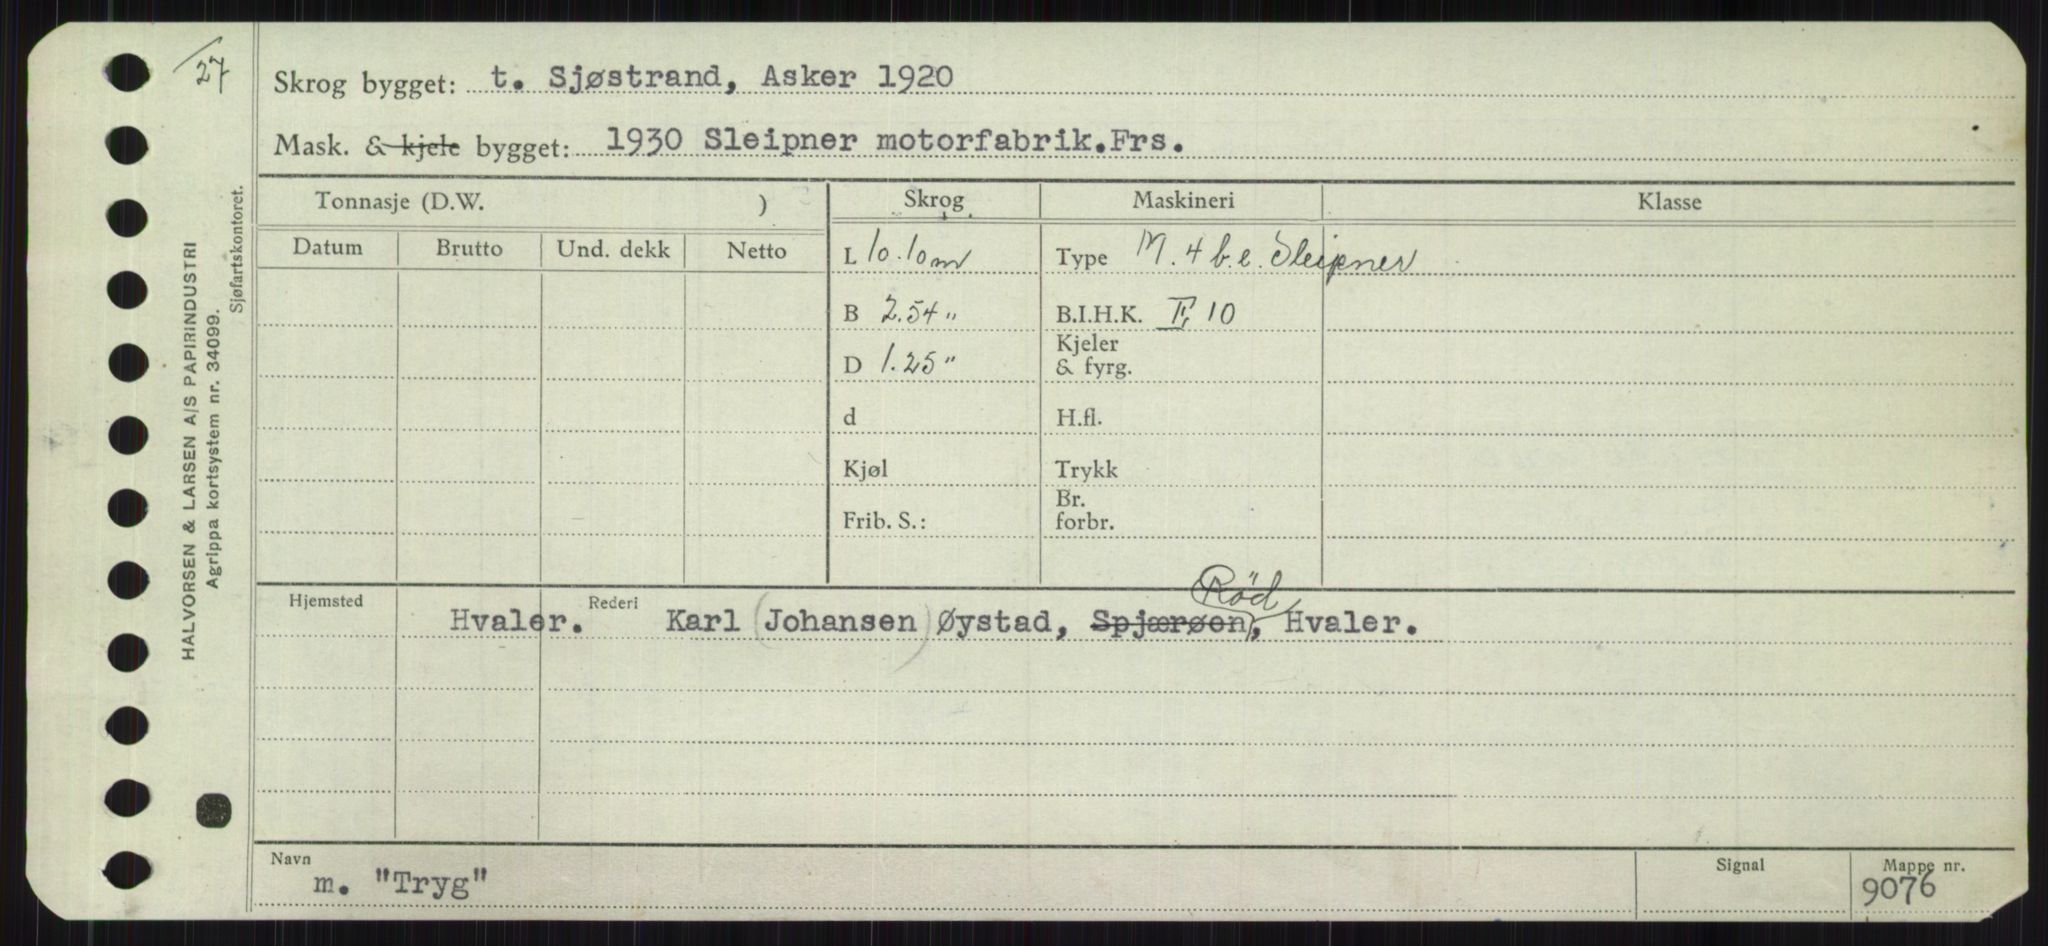 27
Skrog bygget: t. Sjøstrand, Asker 1920
Mask. & kjele bygget: 1930 Sleipner motorfabrik.Frs.
HALVORSEN & LARSEN A/S PAPIRINDUSTRI
Agrippa kortsystem nr. 34099.
Sjøfartskontoret.
Tonnasje (D.W. ) Skrog Maskineri Klasse
Datum Brutto Und. dekk Netto
L 10.10m Type M. 4 b.e. Sleipner
B 2.54 " B.I.H.K. II, 10
D 1.25 " Kjeler & fyrg.
d H.fl.
Kjøl Trykk
Frib. S.: Br. forbr.
Rød
Hjemsted Hvaler. Rederi Karl (Johansen) Øystad, Spjærøen, Hvaler.
Navn Signal Mappe nr.
m. "Tryg" 9076